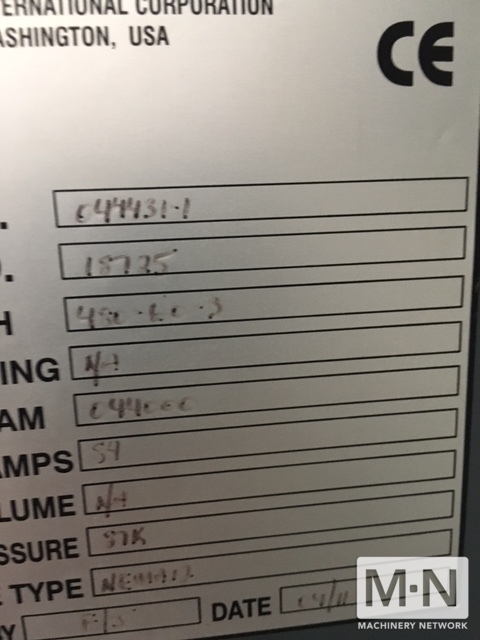 ERNATIONAL CORPORATION
ASHINGTON, USA
CE
. 044431-1
. 18725
H 480-60-3
ING N/A
AM 044000
MPS 54
LUME N/A
SSURE 57K
E TYPE NEMA12
Y DATE 04/11
M·N
MACHINERY NETWORK